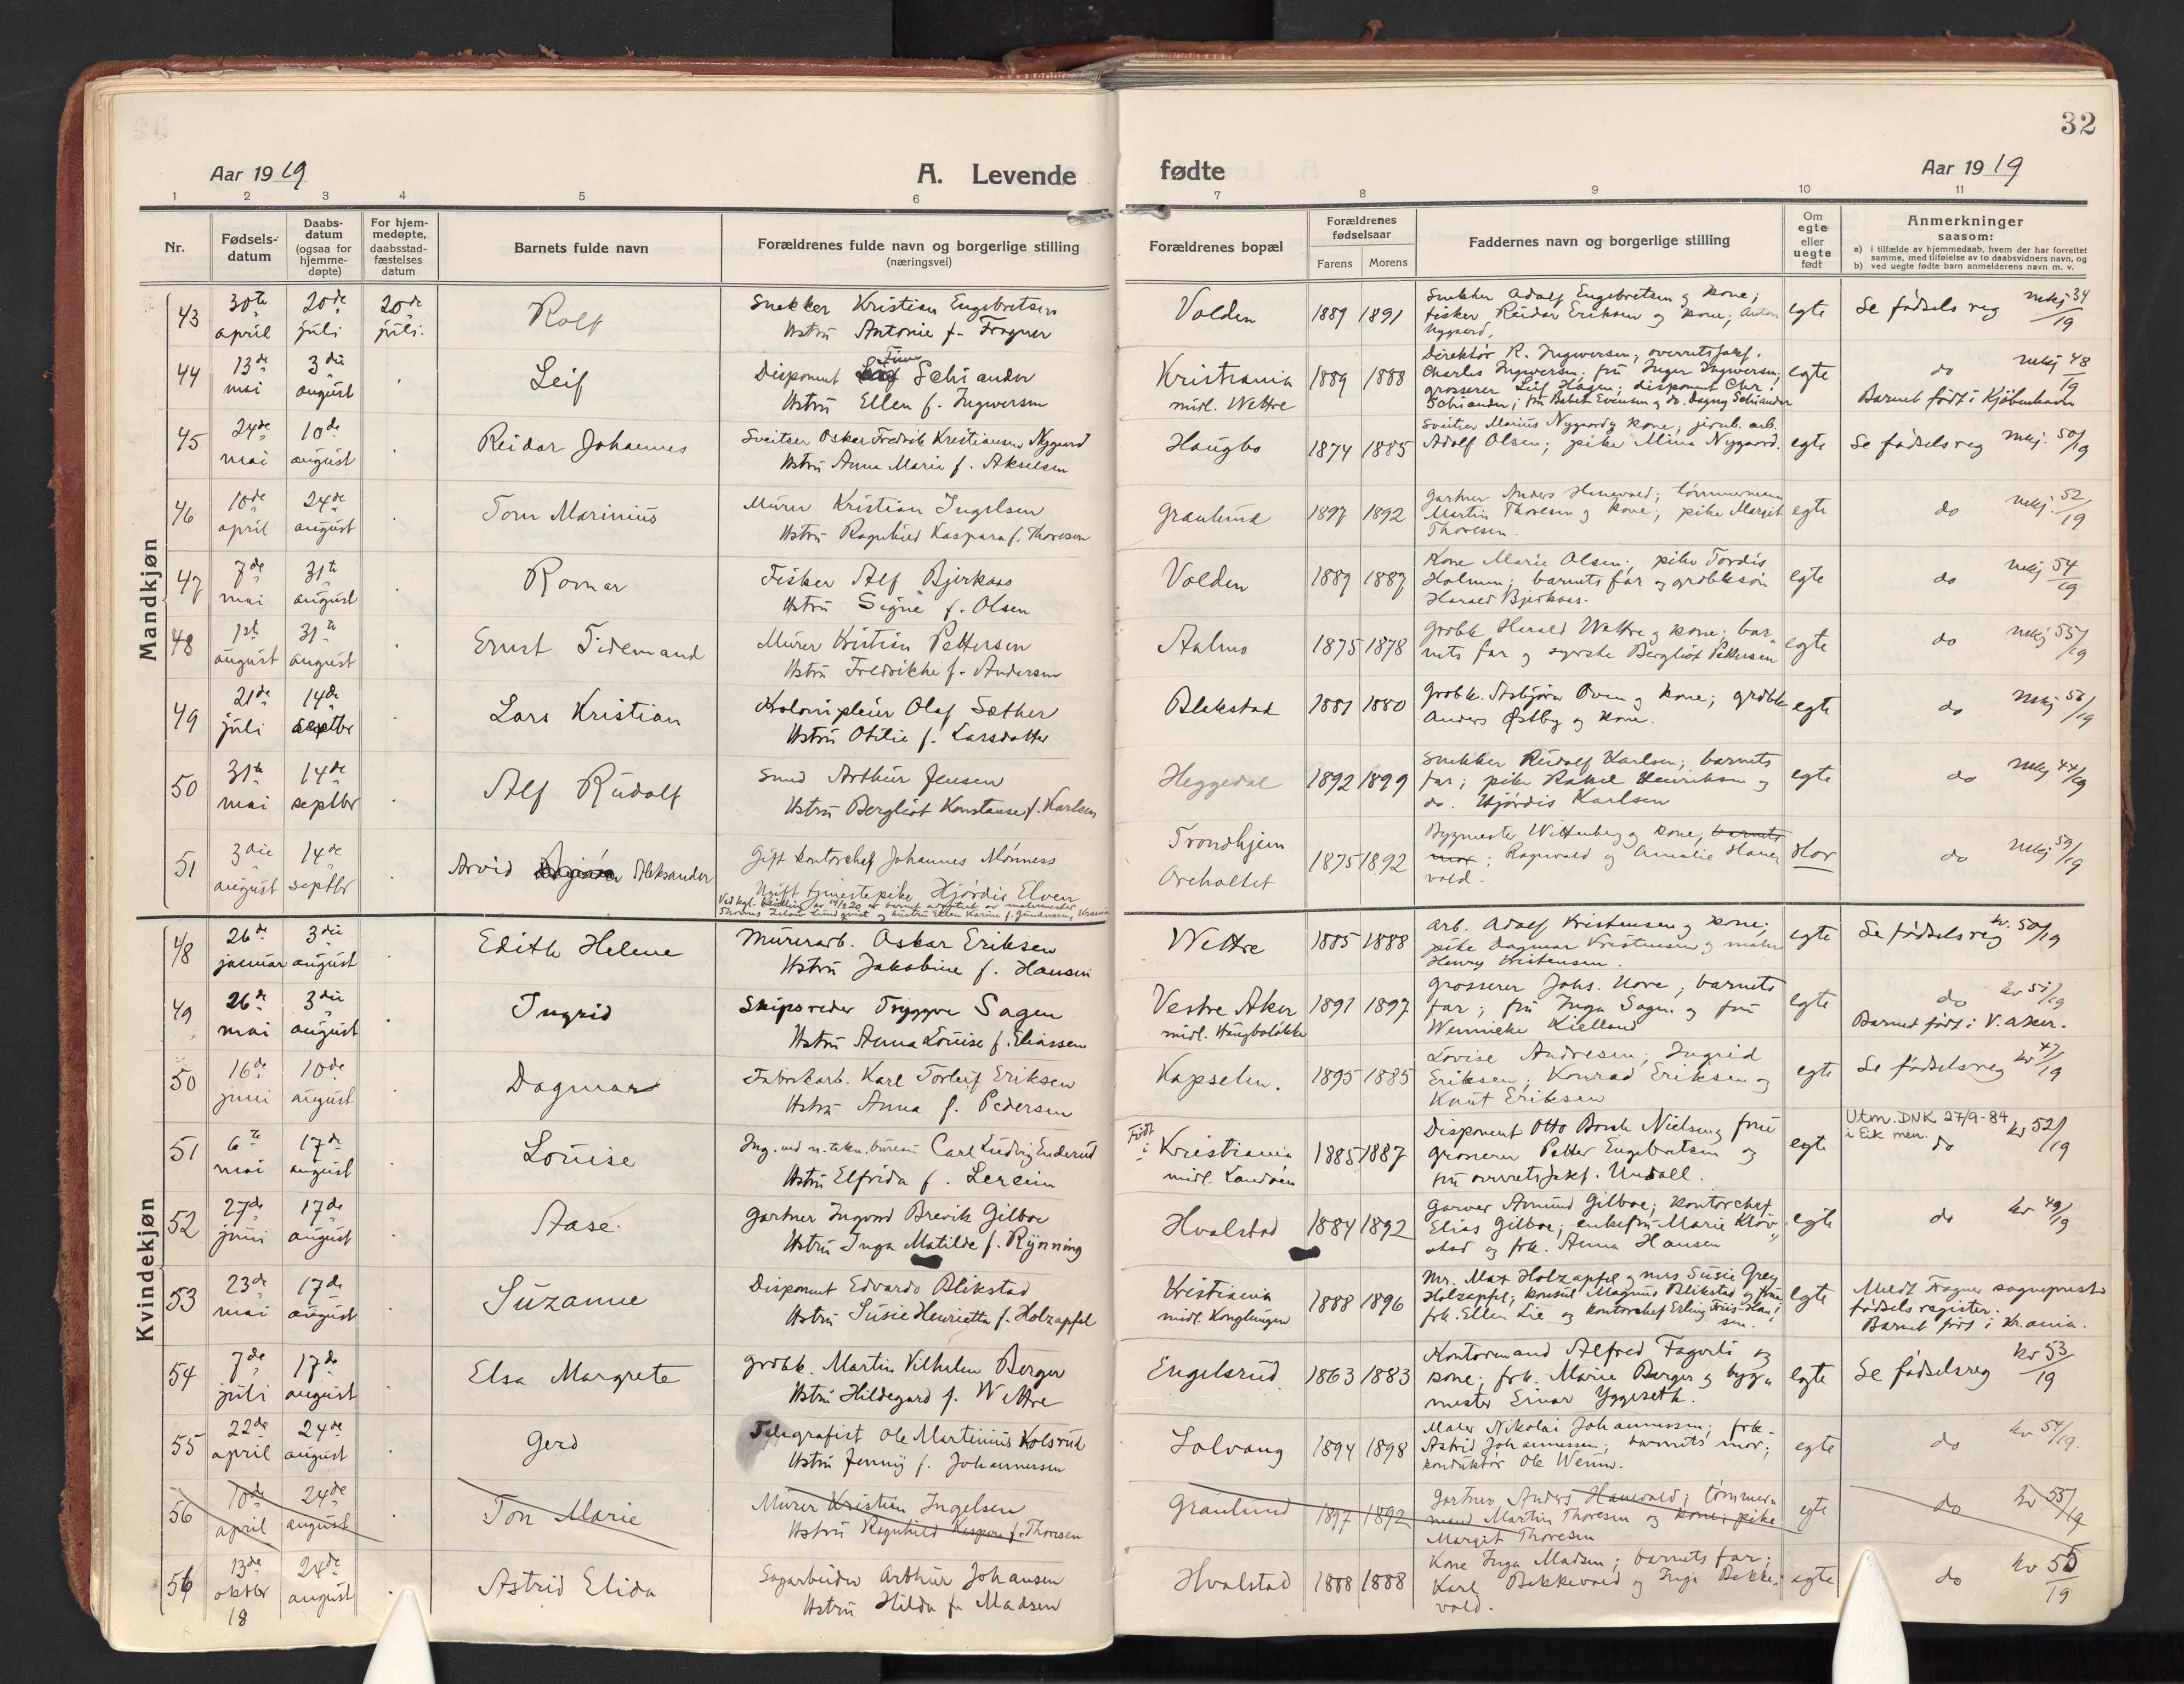 32
Aar 1919 A. Levende fødte Aar 1919
1 2 3 4 5 6 7 8 9 10 11
Nr. Fødsels-datum Daabs-datum (ogsaa for hjemme-døpte) For hjem-medøpte, daabsstad-fæstelses datum Barnets fulde navn Forældrenes fulde navn og borgerlige stilling (næringsvei) Forældrenes bopæl Forældrenes fødselsaar Farens Morens Faddernes navn og borgerlige stilling Om egte eller uegte født Anmerkninger saasom: a) i tilfælde av hjemmedaab, hvem der har forrettet samme, med tilføielse av to daabsvidners navn, og b) ved uegte fødte barn anmelderens navn m. v.
Mandkjøn
43 30te april 20de juli 20de juli. Rolf Snekker Kristian Engebretsen
Hstru Antonie f. Fragner Volden 1889 1891 Snekker Adolf Engebretsen og kone;
fisker Reidar Eriksen og kone; Anton
Nygaard, egte Se fødsels reg mkj 34/19
44 13de mai 3die august Leif Disponent Finn Schiander
Hstru Ellen f. Ingwersen Kristiania
midl. Wettre 1889 1888 Direktør R. Ingwersen; overretssakf.
Charles Ingwersen; fru Inger Ingwersen;
grosserer Leif Hagen; disponent Chr.
Schiander; fru Babet Evensen og do. Dagny Schiander egte do mkj 48/19
Barnet født i Kjøbenhavn
45 24de mai 10de august Reidar Johannes Sveitser Oskar Fredrik Kristiansen Nygaard
Hstru Anna Marie f. Akselsen Haugbo 1874 1885 Sveitser Marius Nygaard og kone; jernb. arb.
Adolf Olsen; pike Mina Nygaard. egte Se fødselsreg mkj. 50/19
46 10de april 24de august Tom Marinius Murer Kristian Ingelsen
Hstru Ragnhild Kaspara f. Thoresen Granlund 1897 1892 Gartner Anders Hanevold; tømmermann
Martin Thoresen og kone; pike Margit
Thoresen. egte do mkj. 52/19
47 7de mai 31te august Romar Fisker Alf Bjerkaas
Hstru Signe f. Olsen Volden 1889 1887 Kone Marie Olsen; pike Tordis
Holmen; barnets far og grdbkesøn
Harald Bjerkaas. egte do mkj 54/19
48 1ste august 31te august Ernst Tidemand Murer Kristian Pettersen
Hstru Fredrikke f. Andersen Aalmo 1875 1878 Grdbk Harald Wettre og kone; bar-
nets far og syerske Bergliot Pettersen egte do mkj 55/19
49 21de juli 14de septbr Lars Kristian Kolonipleier Olaf Sæther
Hstru Otilie f. Larsdatter Blekstad 1881 1880 Grdbk. Asbjørn Oven og kone; grdbk
Anders Østby og kone. egte do mkj 56/19
50 31te mai 14de septbr Alf Rudolf Smed Arthur Jensen
Hstru Bergliot Konstanse f. Karlsen Heggedal 1892 1899 Snekker Rudolf Karlsen; barnets
far; pike Rakel Henriksen og
do. Hjørdis Karlsen egte do mkj 44/19
51 3die august 14de septbr Arvid Aleksander Gift kontorchef Johannes Mønness
Ugift tjenestepike Hjørdis Elven
Trondhjem
Oreholtet 1875 1892 Bygmester Wittenberg og kone; barnets
mor; Ragnvald og Amalie Hane-
vold. Hor do mkj 59/19
Kvindekjøn
48 26de januar 3die august Edith Helene Murerarb. Oskar Eriksen
Hstru Jakobine f. Hansen Wettre 1885 1888 Arb. Adolf Kristensen og kone;
pike Dagmar Kristensen og maler
Henry Kristensen. egte Se fødselsreg kv. 50/19
49 26de mai 3die august Ingrid Skipsreder Tryggve Sagen
Hstru Anna Louise f. Eliassen Vestre Aker
midl. Haugboløkke 1891 1897 Grosserer Johs. Hove; barnets
far; fru Inga Sagen og fru
Wennicke Kielland egte do kv 51/19
Barnet født i V. Aker.
50 16de juni 10de august Dagmar Fabrikarb. Karl Torleif Eriksen
Hstru Anna f. Pedersen Kapselen. 1895 1885 Lovise Andresen; Ingrid
Eriksen; Konrad Eriksen og
Knut Eriksen egte Se fødselsreg kv 47/19
51 6te mai 17de august Louise Ing. ved n. tekn. bureau Carl Ludvig Enderud
Hstru Elfrida f. Lereim Født i Kristiania
midl. Landøen 1885 1887 Disponent Otto Borch Nielsen og frue
grosserer Petter Engebretsen og
fru overretssakf. Undall. egte Utm. DNK 27/9-84
i Eik men.
do kv 52/19
52 27de juni 17de august Aase. Gartner Ingvard Brevik Gilboe
Hstru Inga Matilde f. Rynning Hvalstad 1884 1892 Garver Amund Gilboe; kontorchef
Elias Gilboe; enkefru Marie Klov-
stad og frk. Anna Hansen egte do kv 49/19
53 23de mai 17de august Suzanne Disponent Edvardo Blikstad
Hstru Susie Henrietta f. Holzapfel Kristiania
midl. Konglungen 1888 1896 Mr. Max Holzapfel og mrs Susie Grey
Holzapfel; konsul Magnus Blikstad og frue
frk. Ellen Lie og kontorchef Erling Friis-Han-
sen. egte Meldt Fragner sogneprest
fødselsregister.
Barnet født i Kr.ania.
54 7de juli 17de august Elsa Margrete Grdbk. Martin Vilhelm Berger
Hstru Hildegard f. Wettre Engelsrud 1863 1883 Kontormand Alfred Fagerli og
kone; frk. Marie Berger og byg-
mester Einar Yggeseth. egte Se fødselsreg kv 53/19
55 22de april 24de august Gerd Telegrafist Ole Martinius Kolsrud
Hstru Jenny f. Johannessen Solvang 1894 1898 Maler Nikolai Johannessen; frk.
Astrid Johannessen; barnets mor;
konduktør Ole Wenno. egte do kv 54/19.
56 10de april 24de august Ton Marie Murer Kristian Ingelsen
Hstru Ragnhild Kaspara f. Thoresen Granlund 1897 1892 Gartner Anders Hanevold; tømmer-
mand Martin Thoresen og kone; pike
Margit Thoresen egte do kv 55/19
56 13de oktbr 18 24de august Astrid Elida Sagarbeider Arthur Johansen
Hstru Hilda f. Madsen Hvalstad 1888 1888 Kone Inga Madsen; barnets far;
Karl Bekkevold og Inga Bekke-
vold. egte do kv 55/19